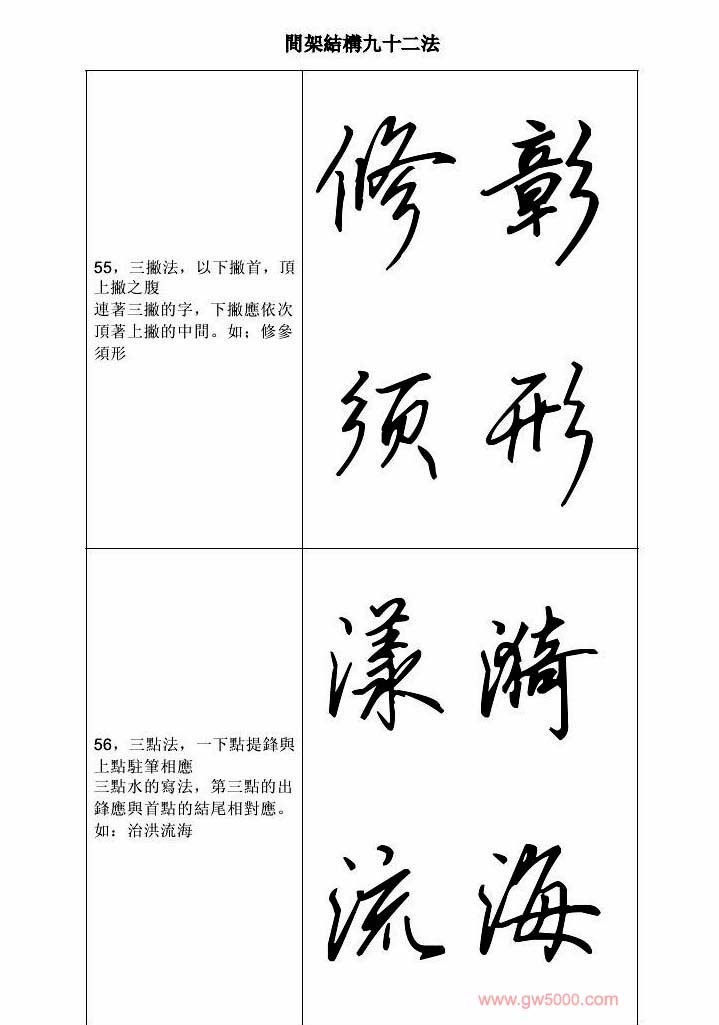 間架結構九十二法
55，三撇法，以下撇首，頂
上撇之腹
連著三撇的字，下撇應依次
頂著上撇的中間。如；修參
須形
修彰
須形
56，三點法，一下點提鋒與
上點駐筆相應
三點水的寫法，第三點的出
鋒應與首點的結尾相對應。
如：治洪流海
漾漪
流海
www.gw5000.com